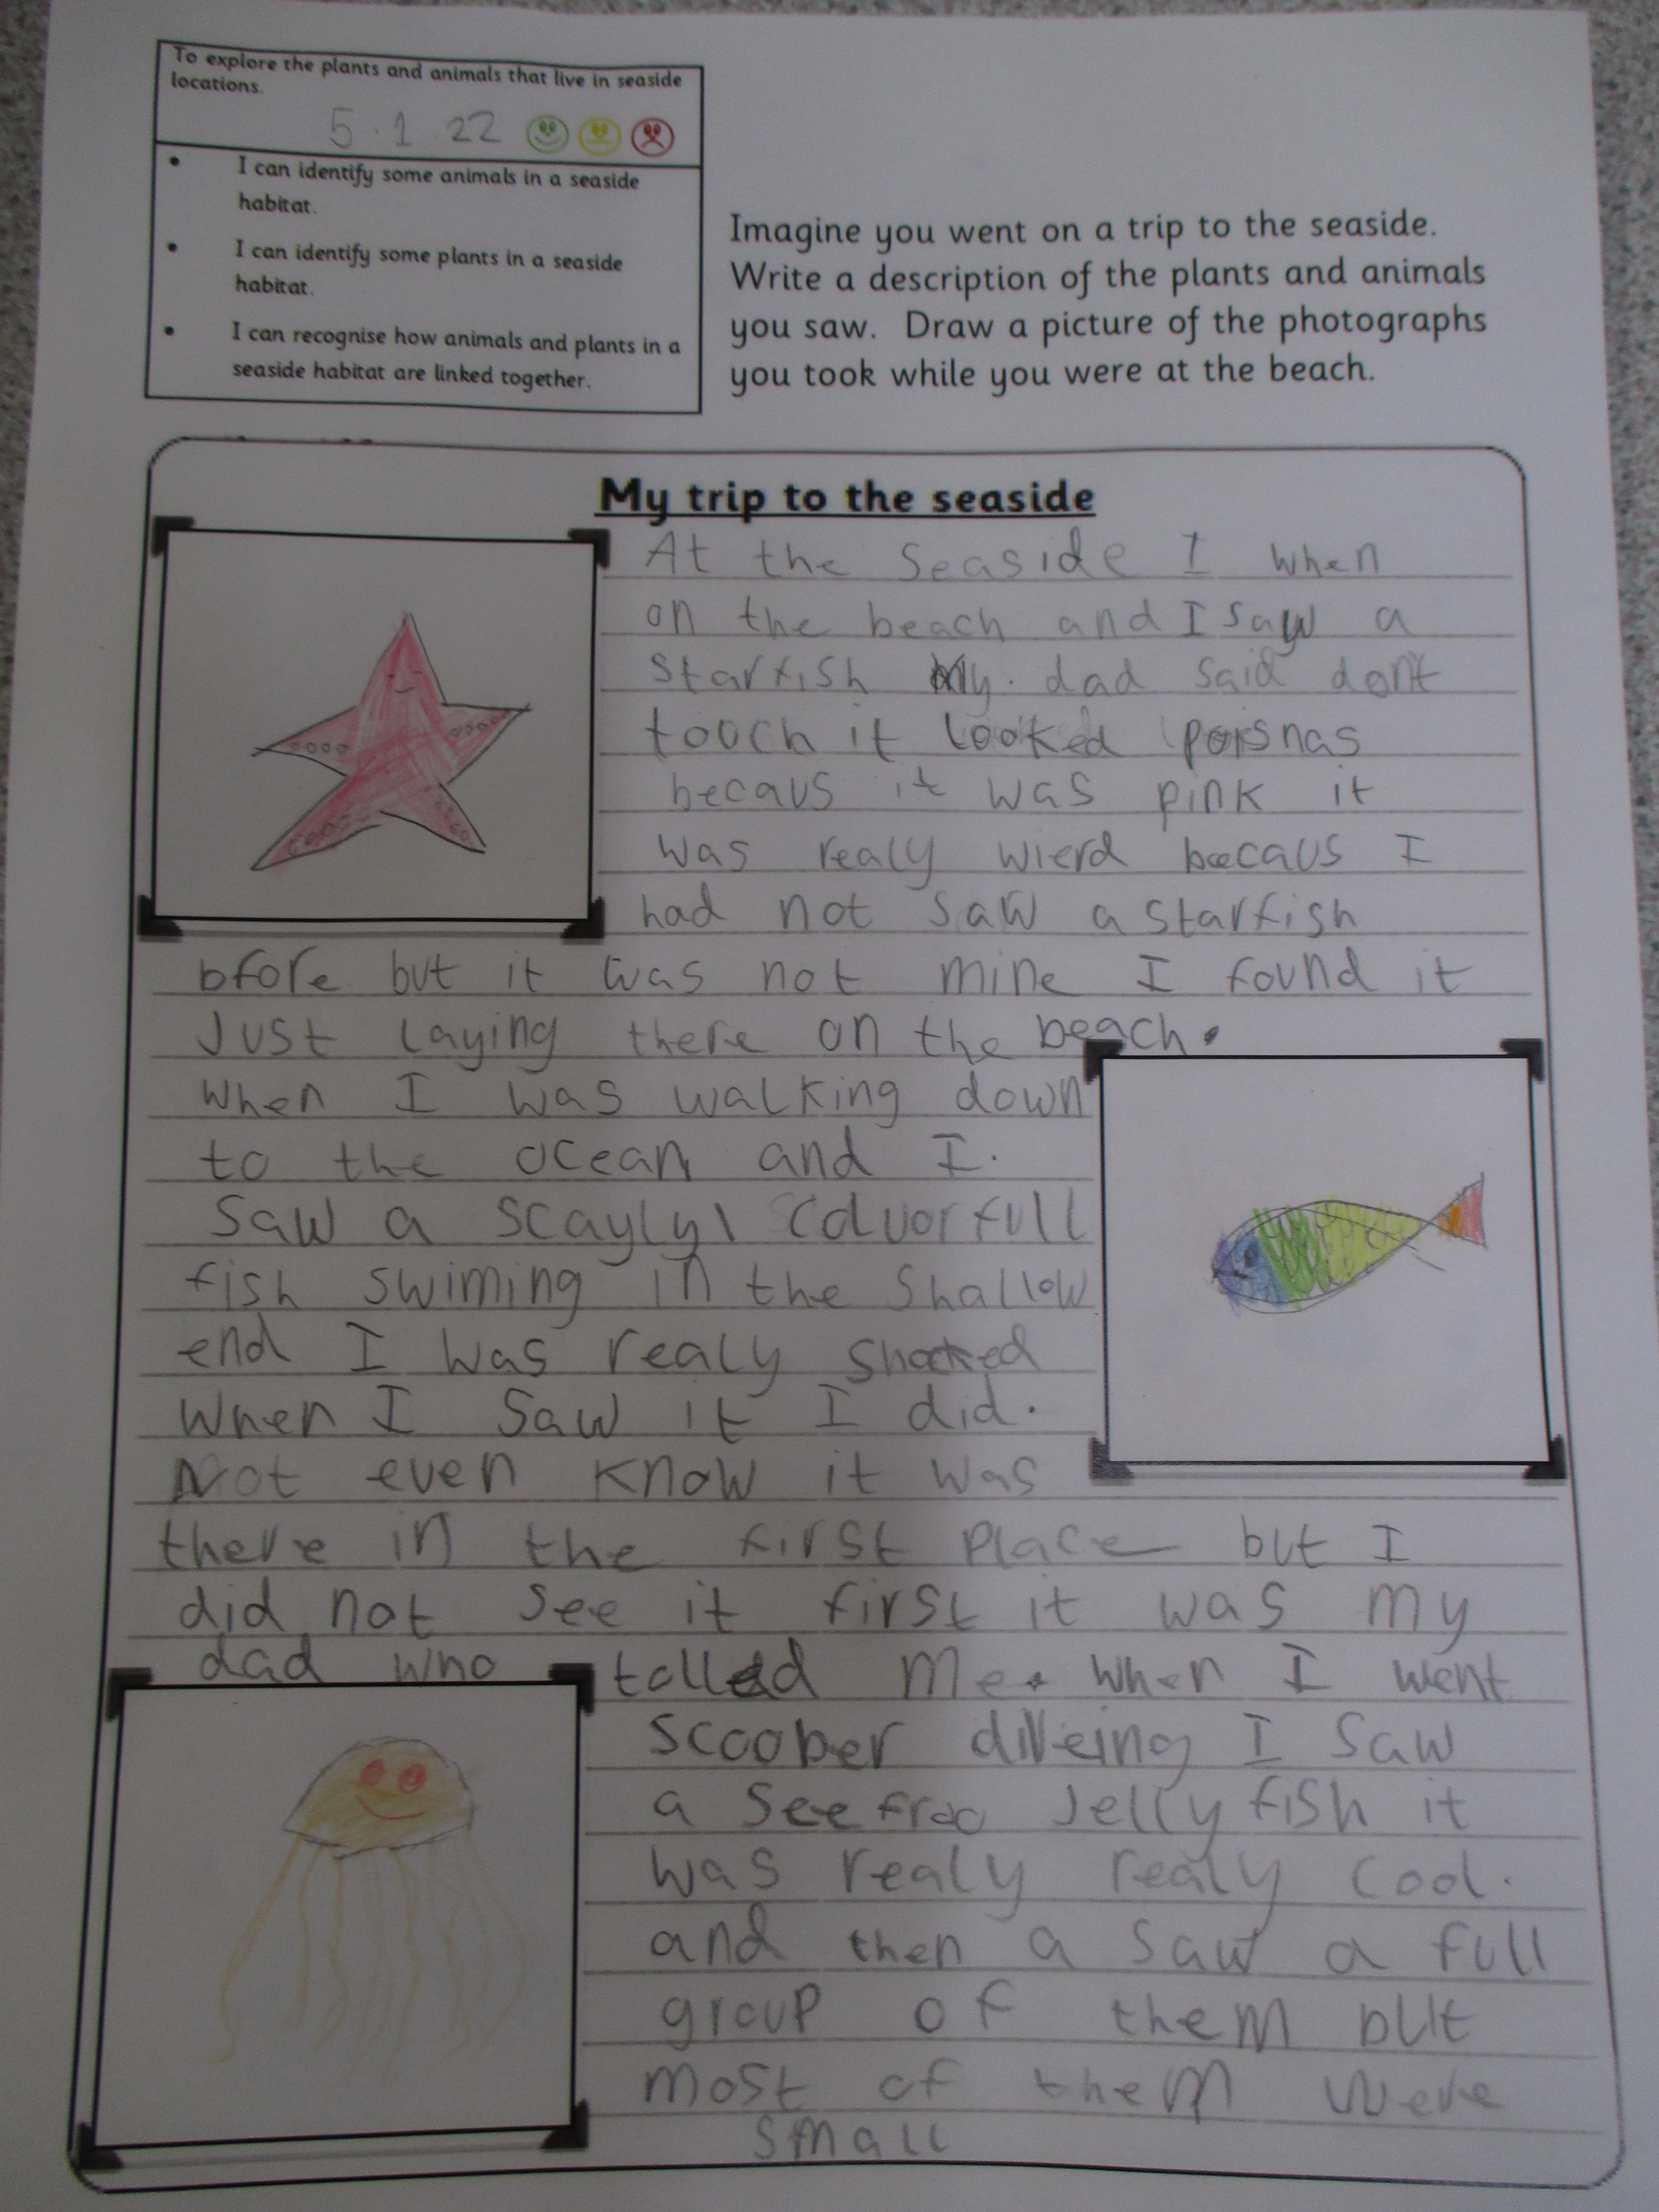 To explore the plants and animals that live in seaside
locations.
5.1.22
• I can identify some animals in a seaside
habitat.
• I can identify some plants in a seaside
habitat.
• I can recognise how animals and plants in a
seaside habitat are linked together.
Imagine you went on a trip to the seaside.
Write a description of the plants and animals
you saw. Draw a picture of the photographs
you took while you were at the beach.
My trip to the seaside
At the seaside I when
on the beach and I saw a
starfish My. dad said don't
tooch it looked poisnas
becaus it was pink it
was realy wierd becaus I
had not saw a starfish
bfore but it was not mine I found it
Just laying there on the beach.
when I was walking down
to the ocean and I.
Saw a scayly, coluorfull
fish swiming in the shallow
end I was realy shocked
when I saw it I did.
Not even know it was
there in the first place but I
did not see it first it was my
dad who tolled me. when I went
scoober diveing I saw
a see froo Jelly fish it
was realy realy cool.
and then a saw a full
group of them but
most of them were
small